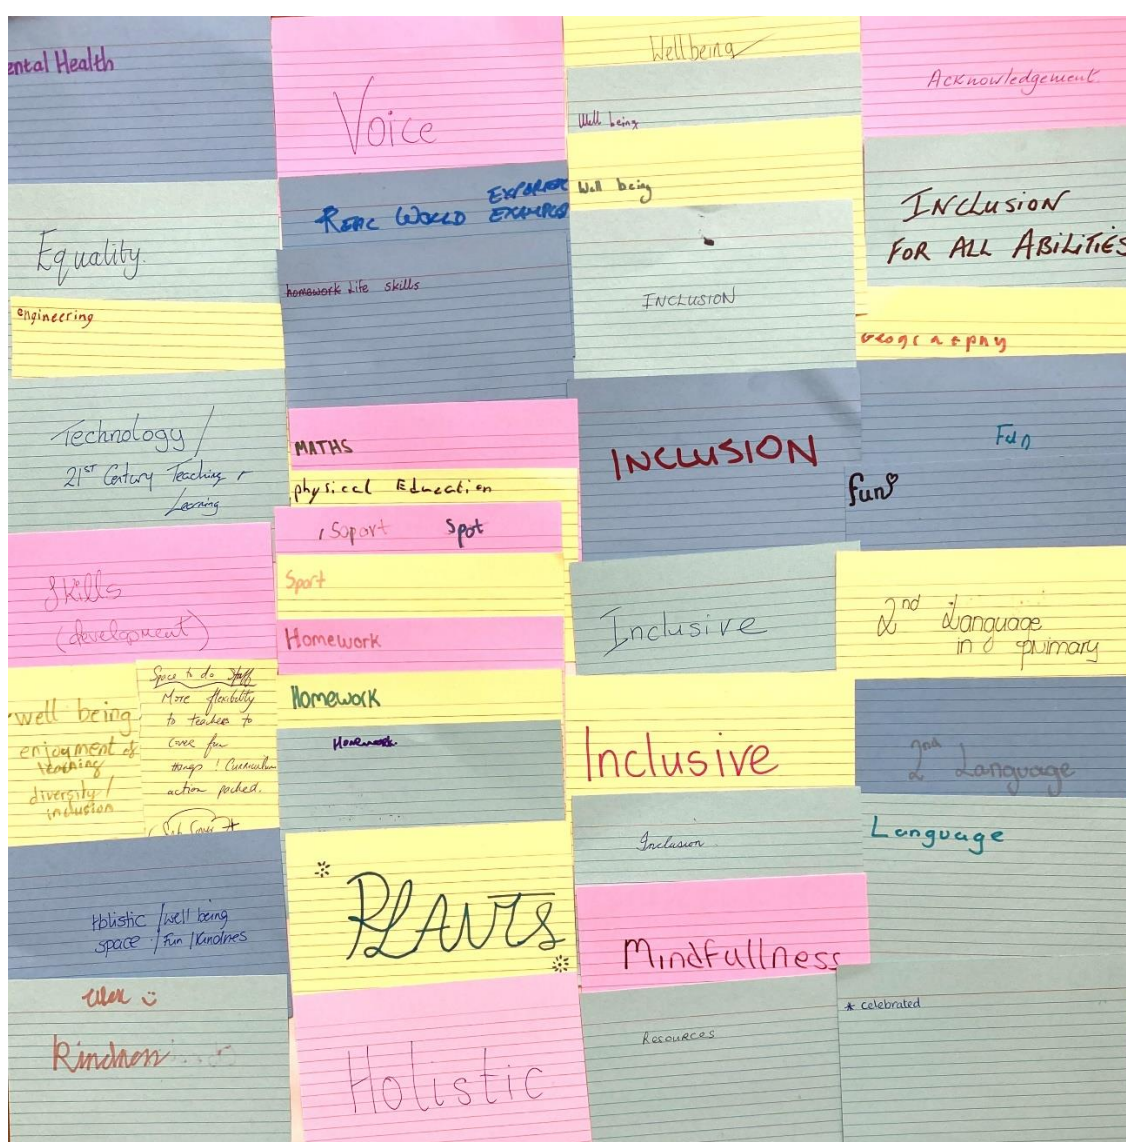 ental Health
Equality
engineering
Technology /
21ST Century Teaching
Learning
Skills
(development)
well being
enjoyment of
teaching
diversity /
inclusion
Space to do stuff
More flexibility
to teachers to
cover fun
things ! Curriculum
action packed.
Holistic / well being
space / Fun / Kindnes
Voice
EXPORIER
REAL WORLD EXAMPLES
homework Life skills
MATHS
physical Education
Soport Spot
Sport
Homework
Homework
Homework
Holistic
Wellbeing
Well being
Well being
INCLUSION
INCLUSION
Inclusive
Inclusive
Inclusion
Mindfullness
Resources
Acknowledgement
INCLUSION
FOR ALL ABILITIES
Geography
Fun
fun
2nd Language
in primary
2nd Language
Language
* celebrated